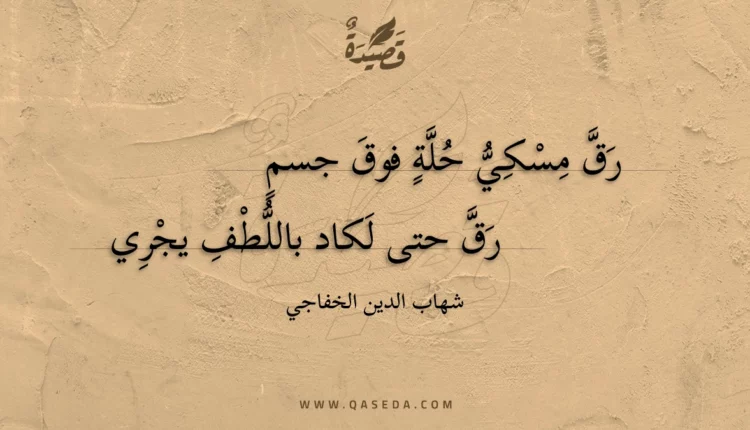 قَصِيْدَةٌ
رَقَّ مِسْكِيُّ حُلَّةٍ فوقَ جسمٍ
رَقَّ حتى لَكاد باللُّطْفِ يجْرِي
شهاب الدين الخفاجي
WWW.QASEDA.COM